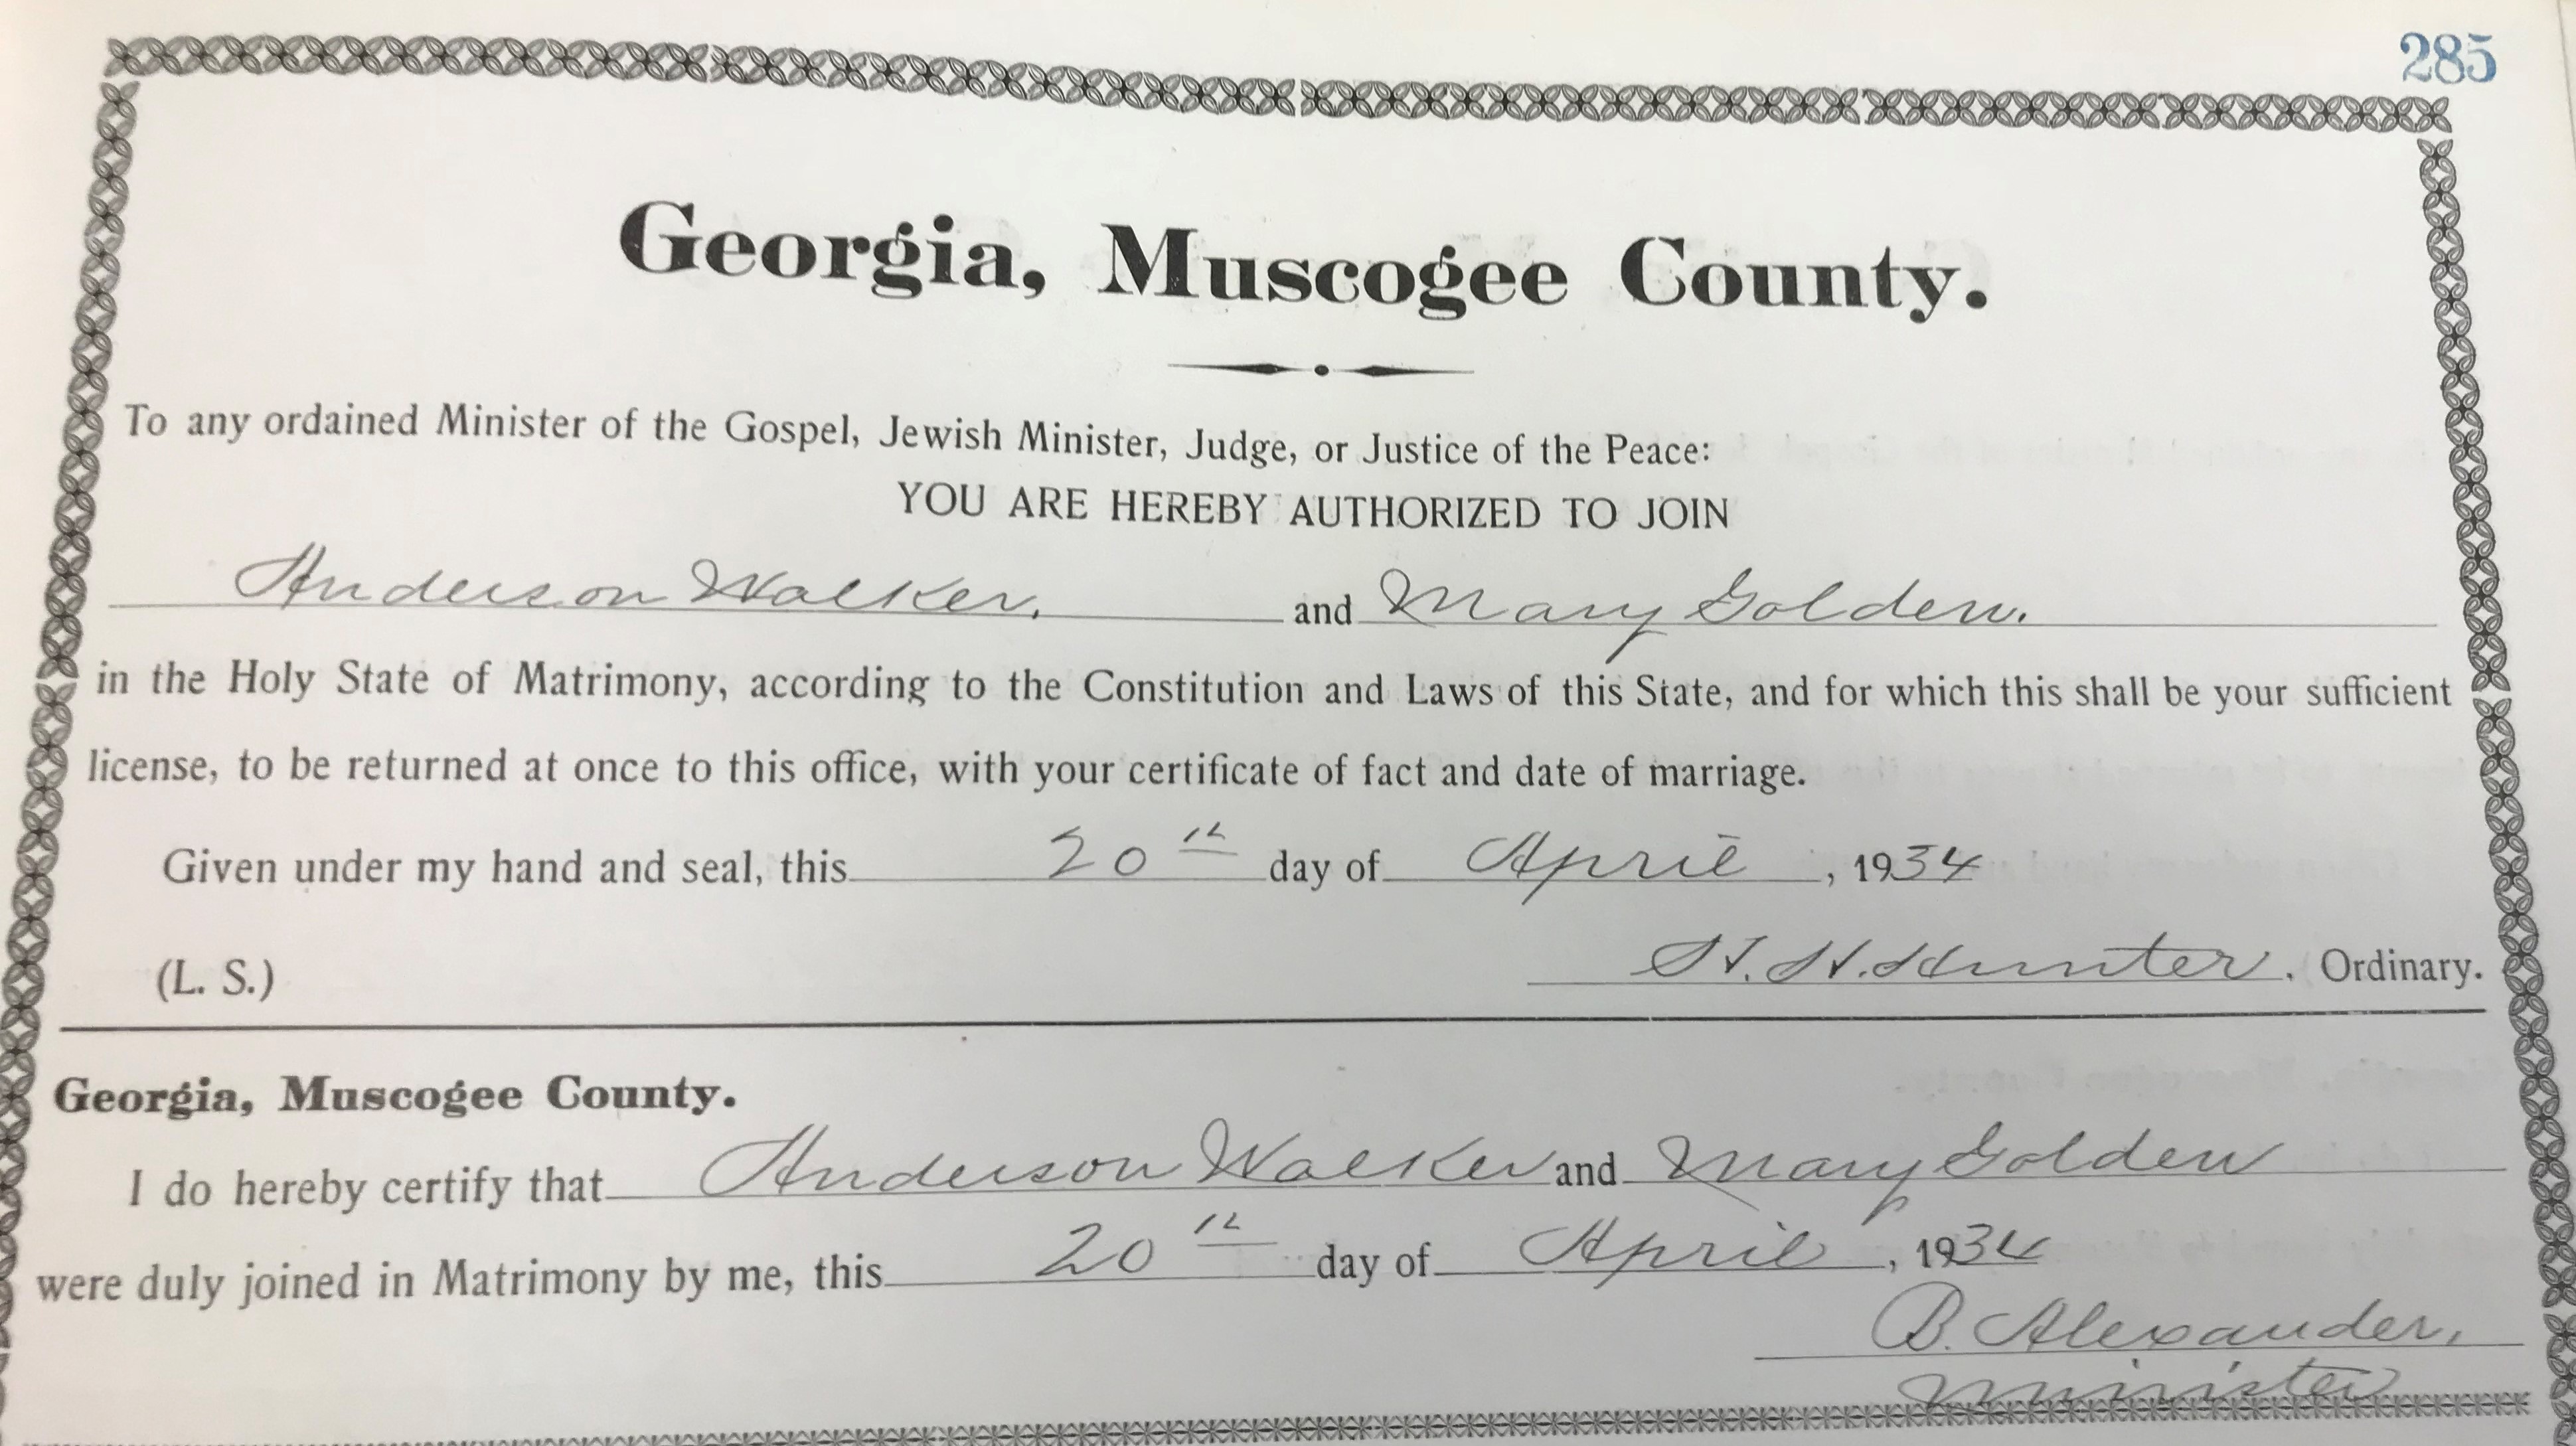 285
Georgia, Muscogee County.
To any ordained Minister of the Gospel, Jewish Minister, Judge, or Justice of the Peace:
YOU ARE HEREBY AUTHORIZED TO JOIN
Anderson Walker, and Mary Golden.
in the Holy State of Matrimony, according to the Constitution and Laws of this State, and for which this shall be your sufficient
license, to be returned at once to this office, with your certificate of fact and date of marriage.
Given under my hand and seal, this 20th day of April, 1934
(L. S.) H. H. Hunter. Ordinary.
Georgia, Muscogee County.
I do hereby certify that Anderson Walker and Mary Golden
were duly joined in Matrimony by me, this 20th day of April, 1934
B. Alexander,
Minister